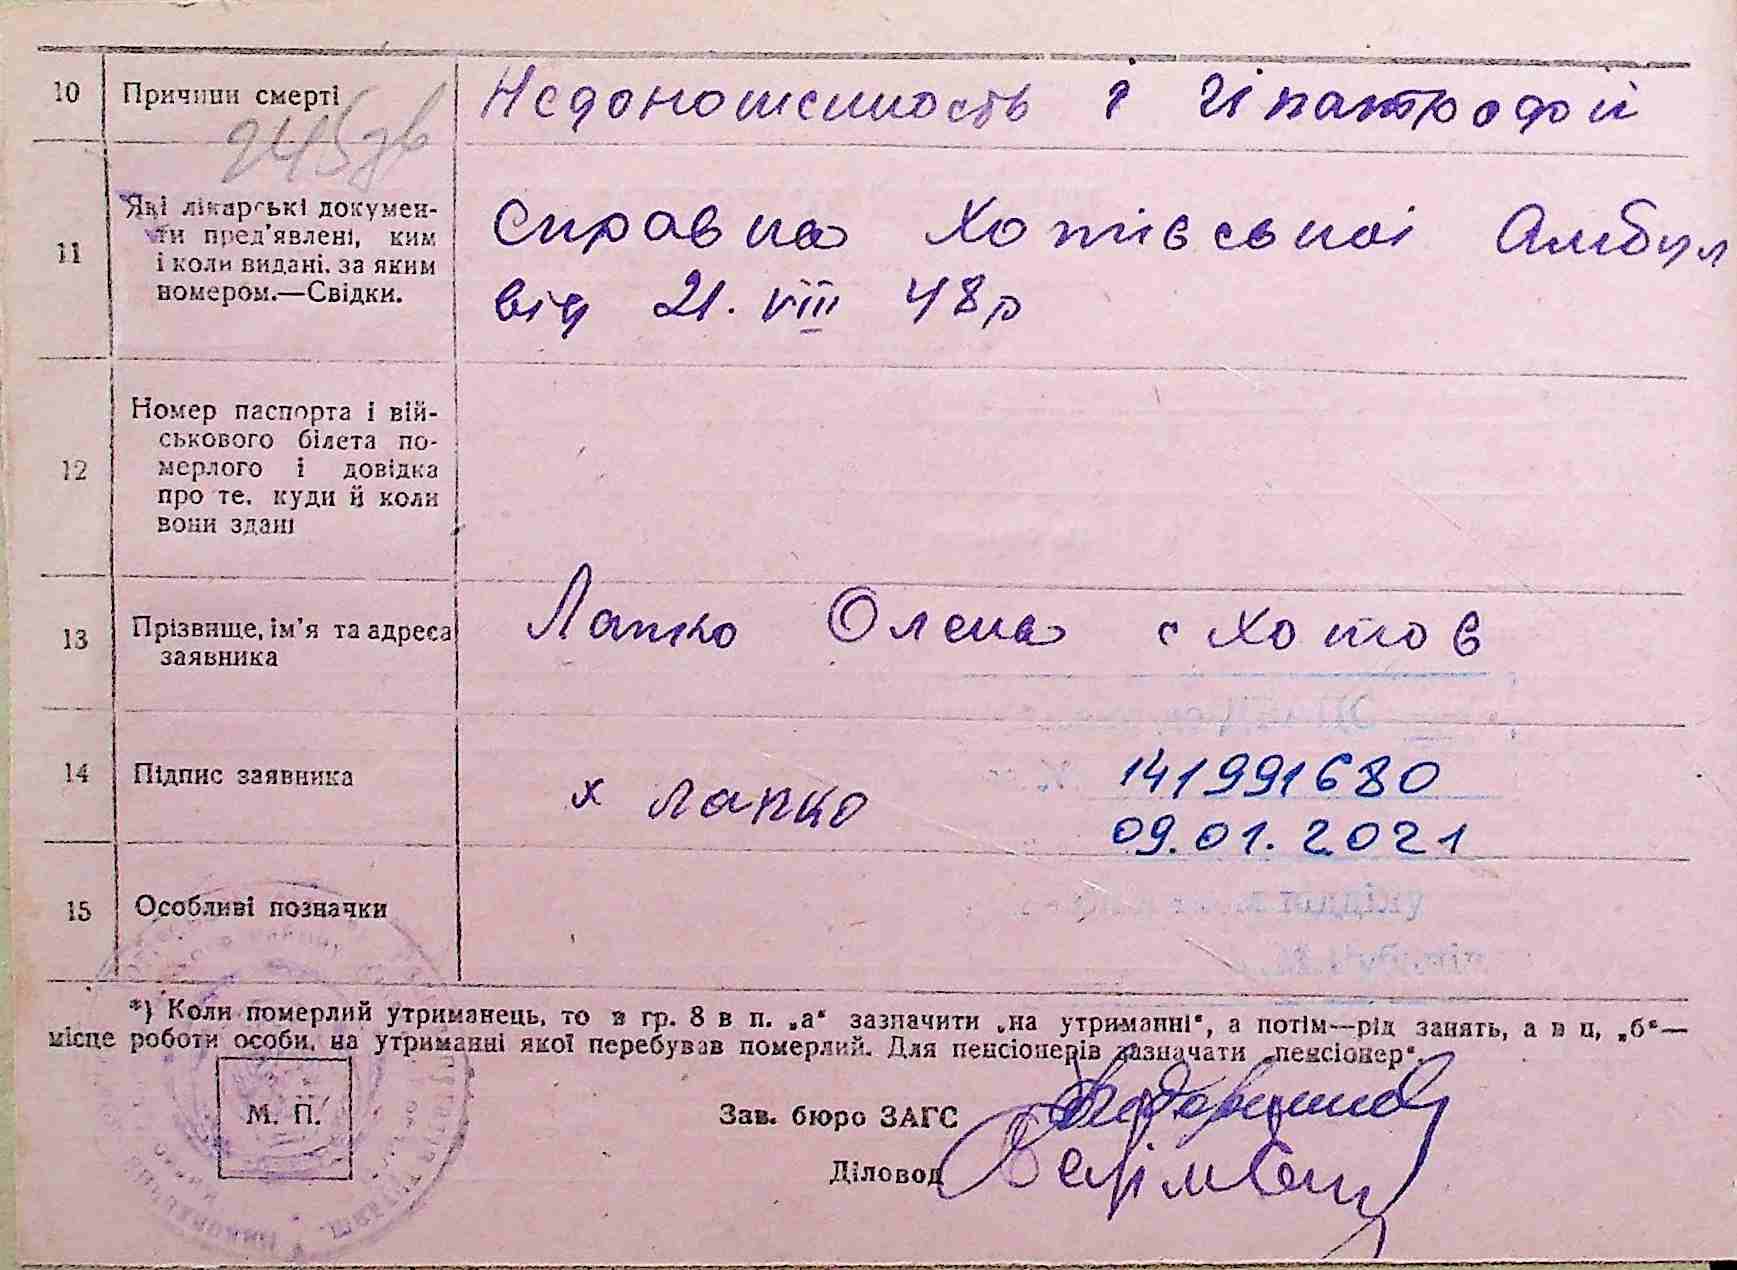 10 Причини смерті Недоношенность і гіпатрофій
245дв
11 Які лікарські докумен-
ти пред'явлені, ким
і коли видані, за яким
номером.—Свідки.
Справка Хотівської Амбул
від 21. VIII 48р
12 Номер паспорта і вій-
ськового білета по-
мерлого і довідка
про те, куди й коли
вони здані
13 Прізвище, ім'я та адреса
заявника
Лапко Олена с Хотов
14 Підпис заявника х Лапко 141991680
09.01.2021
15 Особливі позначки
*) Коли померлий утриманець, то в гр. 8 в п. „а“ зазначити „на утриманні“, а потім—рід занять, а в п. „б“—
місце роботи особи, на утриманні якої перебував померлий. Для пенсіонерів зазначати „пенсіонер“.
М. П.
Зав. бюро ЗАГС
Діловод